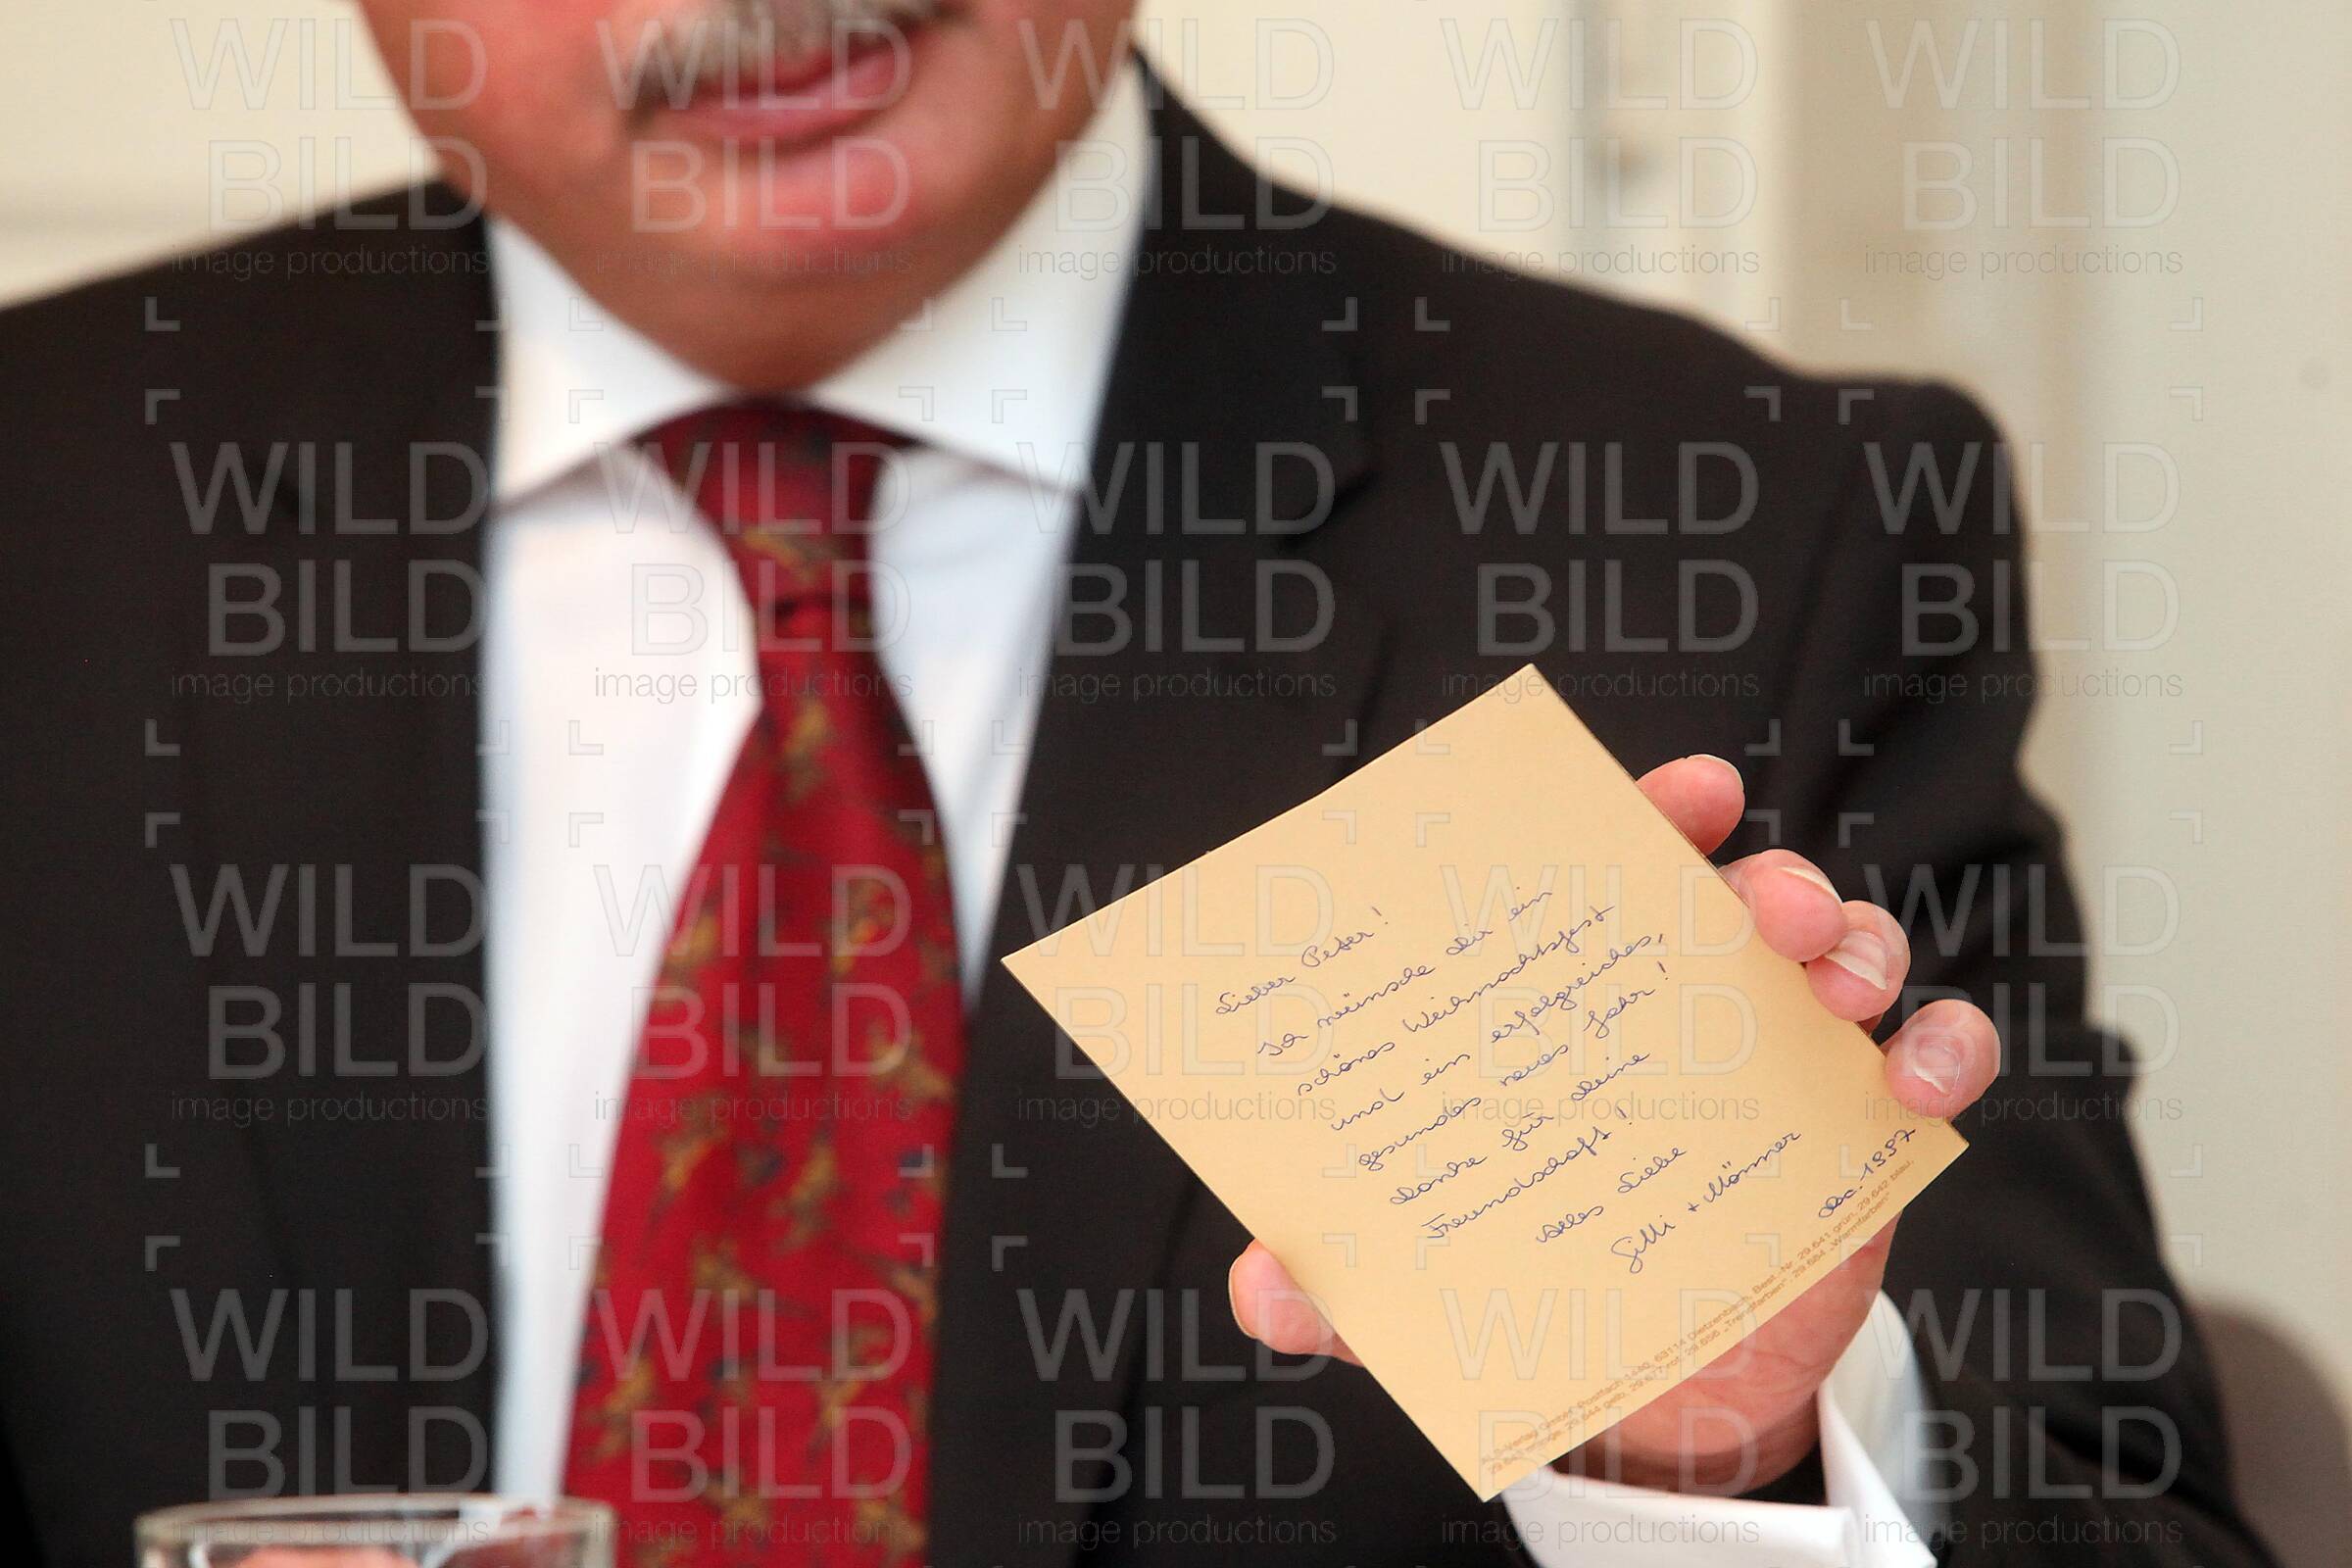 Lieber Peter!
Ich wünsche dir ein
schönes Weihnachtsfest
und ein erfolgreiches,
gesundes neues Jahr!
Danke für deine
Freundschaft!
Alles Liebe
Gilli + Männer
Dez. 1997
ALS-Verlag GmbH, Postfach 1440, 63114 Dietzenbach, Best.-Nr. 29.641 grün, 29.642 blau,
29.643 orange, 29.644 gelb, 29.677 rot, 29.656 „Trendfarben“, 29.684 „Warmfarben“
WILD
BILD
image productions